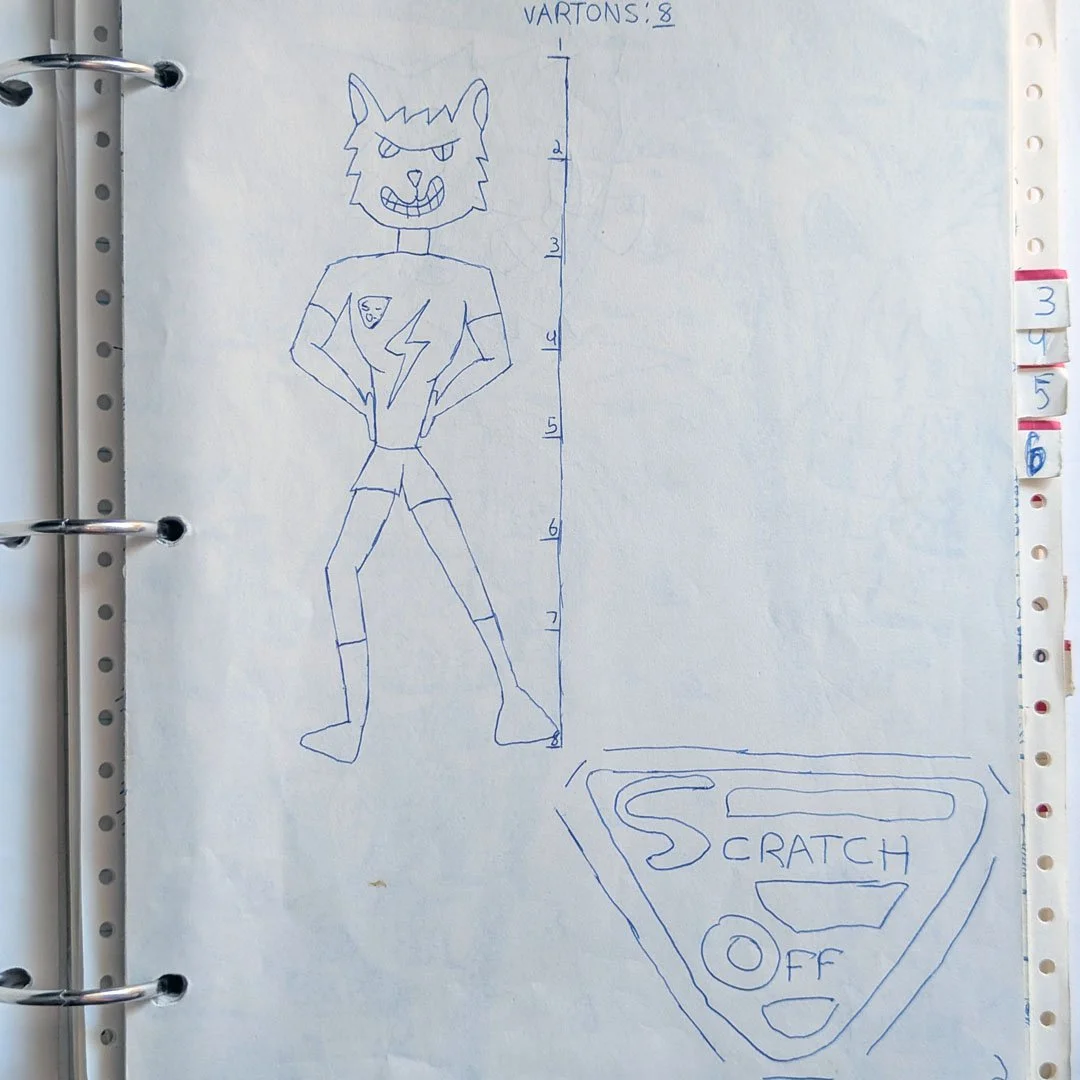 VARTONS: 8
1
2
3
4
5
6
7
8
S
O
SCRATCH
OFF
3
4
5
6
2